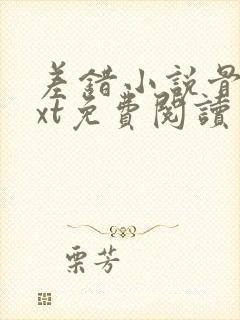 差錯小說骨
xt免費閱讀
栗芳